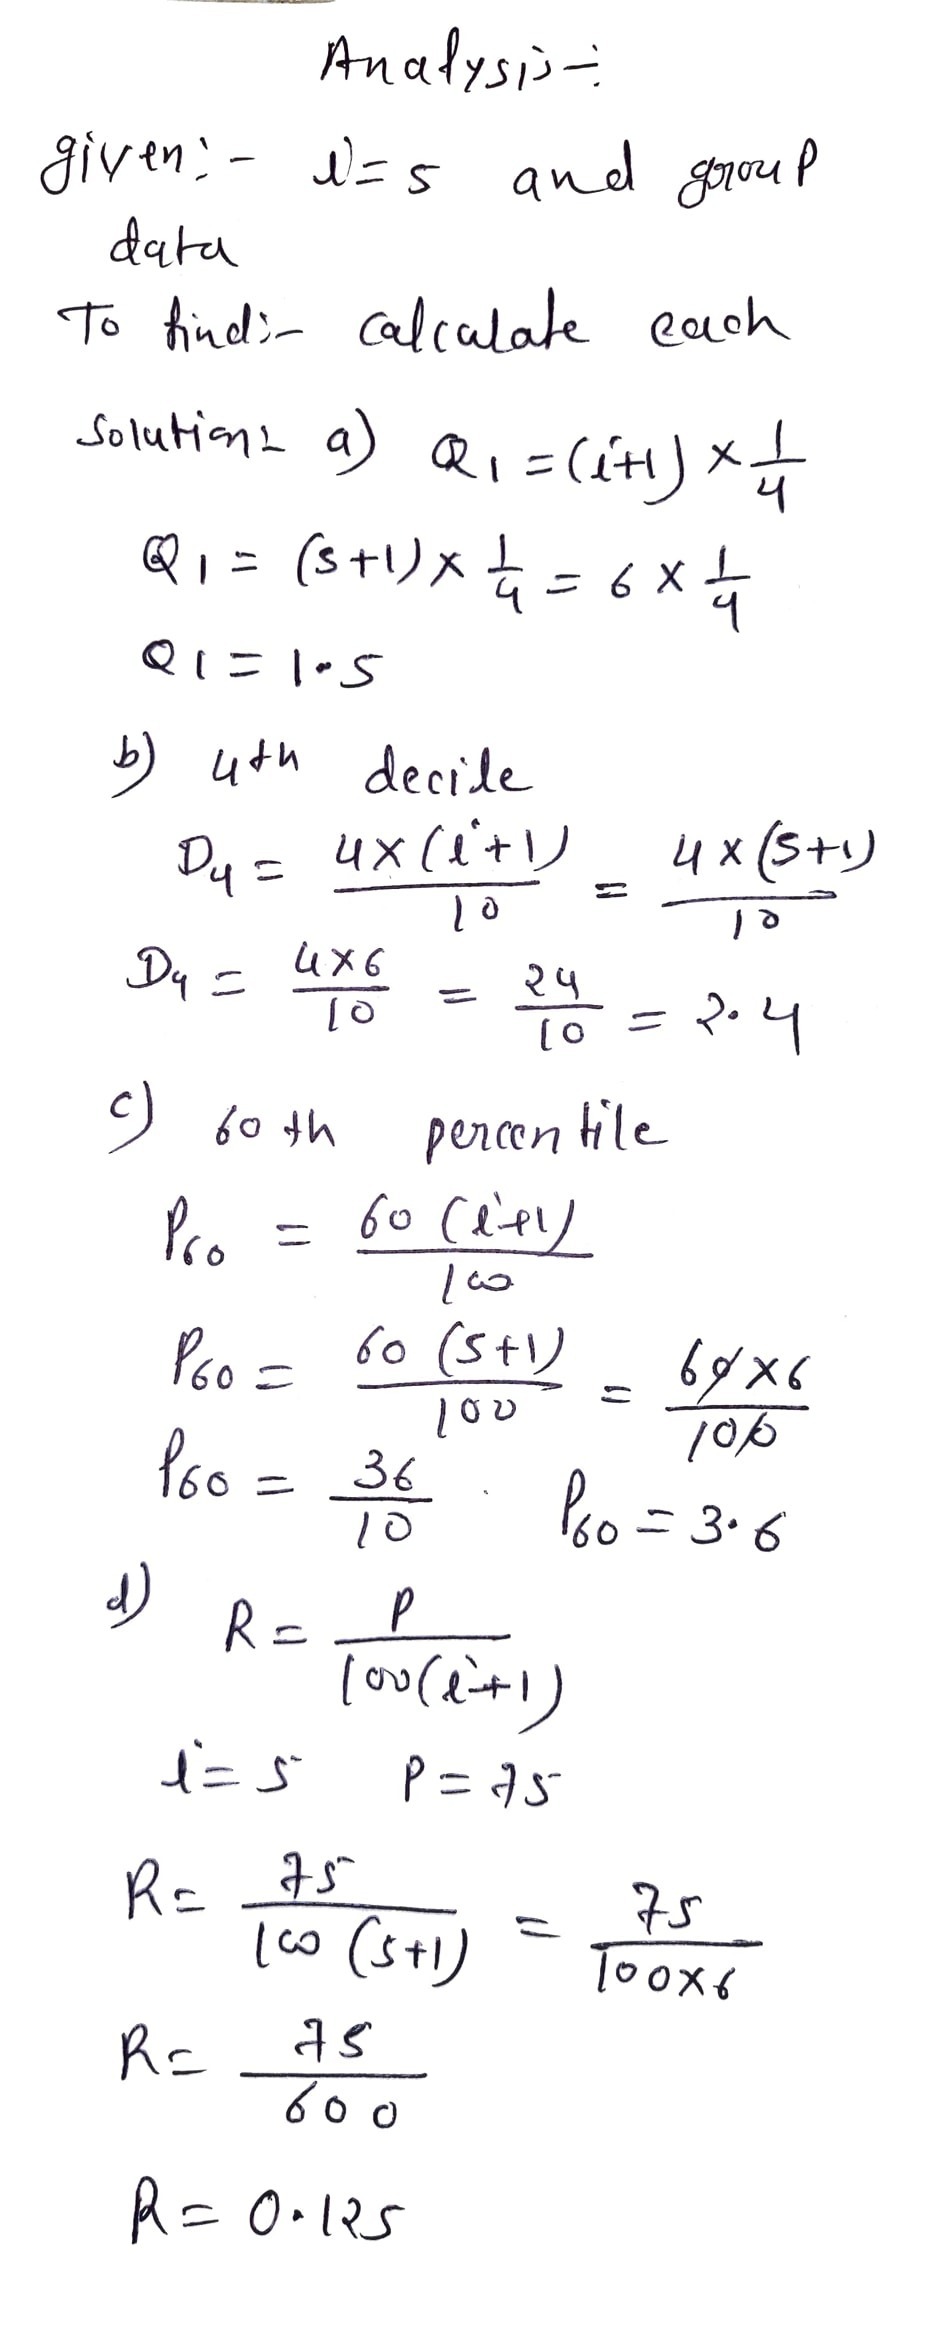 Analysis :-
given :- i = 5 and group
data
To find :- calculate each
Solution :- a) Q1 = (i+1) × 1/4
Q1 = (5+1) × 1/4 = 6 × 1/4
Q1 = 1.5
b) 4th decile
D4 = 4×(i+1)/10 = 4×(5+1)/10
D4 = 4×6/10 = 24/10 = 2.4
c) 60th percentile
P60 = 60(i+1)/100
P60 = 60(5+1)/100 = 60×6/100
P60 = 36/10 . P60 = 3.6
d) R = P/100(i+1)
i = 5 P = 75
R = 75/100(5+1) = 75/100×6
R = 75/600
R = 0.125